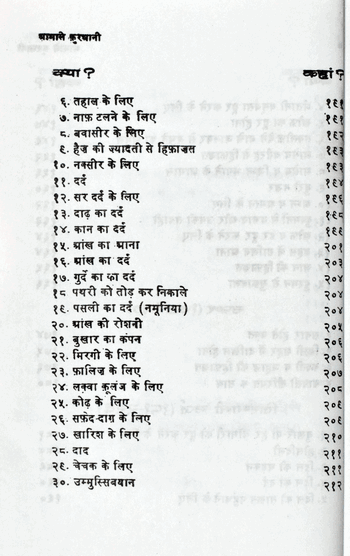 आमाले क़ुरआनी
क्या ? कहां ?
६. तहाल के लिए १९१
७. नाफ़ टलने के लिए १९१
८. बवासीर के लिए १९२
९. हैज़ की ज्यादती से हिफ़ाज़त १९३
१०. नक्सीर के लिए १९३
११. दर्द १९४
१२. सर दर्द के लिए १९६
१३. दाढ़ का दर्द १९८
१४. कान का दर्द १९९
१५. आंख का आना २०१
१६. आंख का दर्द २०३
१७. गुर्दे का का दर्द २०४
१८ पथरी को तोड़ कर निकाले २०४
१९. पसली का दर्द (नमूनिया) २०४
२०. आंख की रोशनी २०५
२१. बुखार का कंपन २०६
२२. मिरगी के लिए २०६
२३. फ़ालिज के लिए २०७
२४. लक्वा क़ूलंज के लिए २०८
२५. कोढ़ के लिए २०९
२६. सफ़ेद-दाग़ के लिए २०९
२७. खारिश के लिए २१०
२८. दाद २११
२९. चेचक के लिए २११
३०. उम्मुस्सिबयान २१२